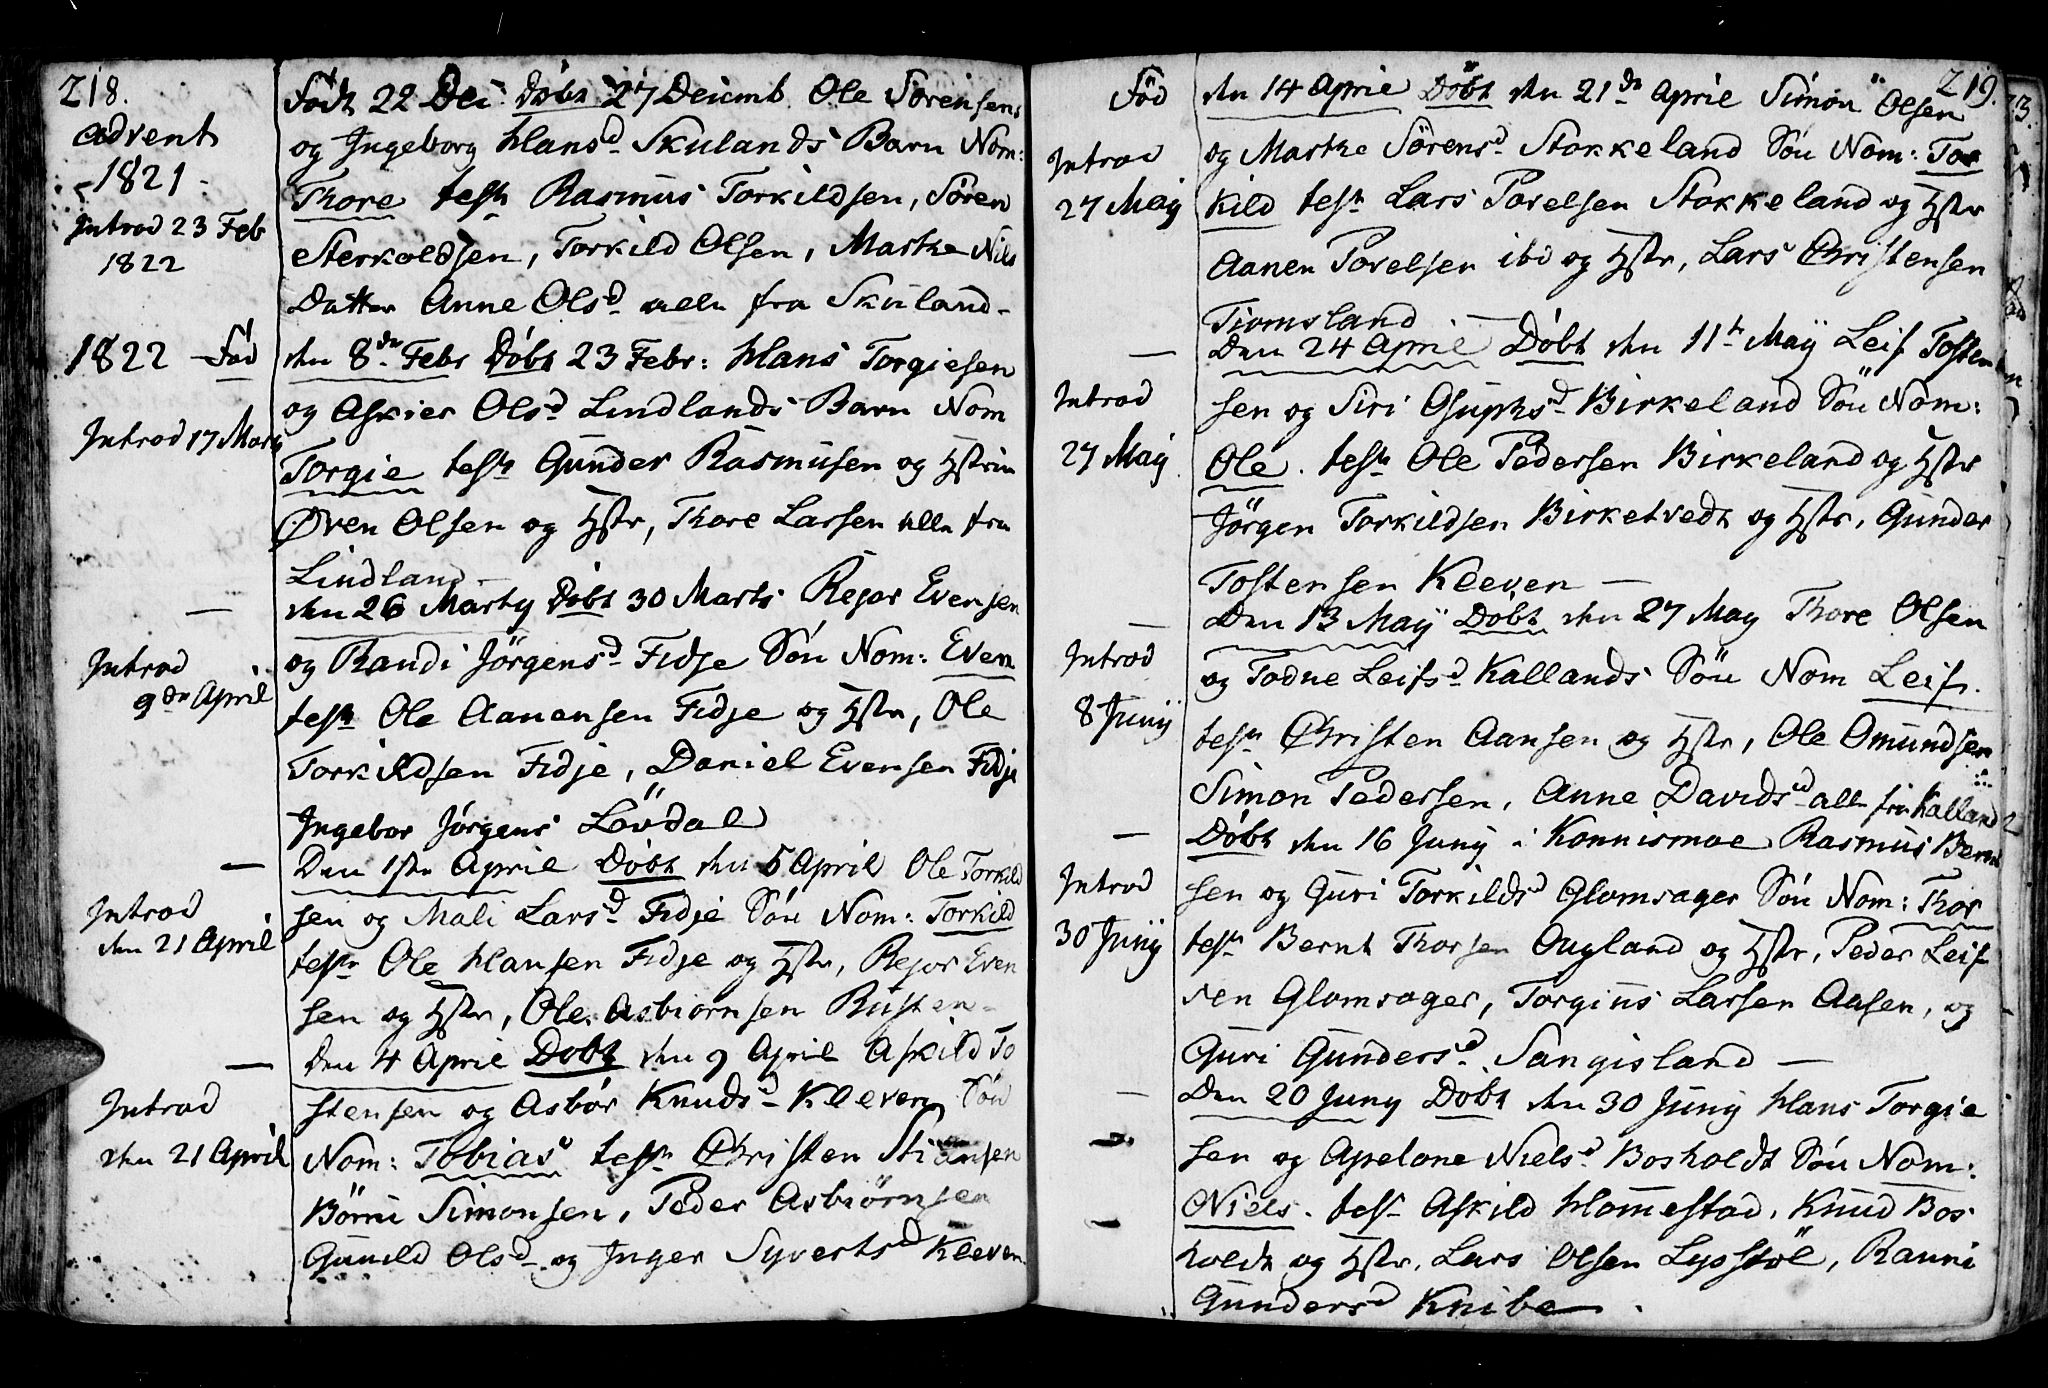 218.
Advent
1821
Introd 23 Feb
1822
Født 22 Dec: Döbt 27 Decemb. Ole Sörensens
og Ingeborg Hansd Skulands Barn Nom:
Thore test Rasmus Torkildsen, Sören
Sterkoldsen, Torkild Olsen, Marthe Nils
Datter Anne Olsd alle fra Skuland-
1822 Fød
Introd 17 Marty
den 8de Febr Döbt 23 Febr: Hans Torgiesen
og Askier Olsd Lindlands Barn Nom
Torgie test Gunder Rasmusen og Hstru
Øven Olsen og Hstr, Thore Larsen alle fra
Lindland-
—
Introd
9de April
den 26 Marty Döbt 30 Marts Rejar Evensen
og Randi Jörgensd Fidje Sön Nom: Even
test Ole Aanensen Fidje og Hstr, Ole
Torkildsen Fidje, Daniel Evensen Fidje
Ingebor Jörgens Lövdal
—
Introd
den 21 April
Den 1ste April Döbt den 5 April Ole Torkild
sen og Mali Larsd Fidje Sön Nom: Torkild
test Ole Hansen Fidje og Hstr, Rejar Even
sen og Hstr, Ole Asbiörnsen Rusten-
—
Introd
den 21 April
Den 4 April Döbt den 9 April Askild To
stensen og Asbör Knudsd Kleven Sön
Nom: Tobias test Christen Stiansen
Börrii Simonsen, Peder Asbiörnsen
Gunild Olsd og Inger Syvertsd Kleven.
219.
Föd
Introd
27 Maij
den 14 April Döbt den 21de April Simon Olsen
og Marthe Sörensd Stokkeland Sön Nom: Tor
kild test Lars Povelsen Stokkeland og Hstr
Aanen Povelsen ibd og Hstr, Lars Christensen
Tiomsland —
—
Introd
27 Maij
Den 24 April Döbt den 11te Maij Leif Tosten
sen og Siri Osuphsd Birkeland Sön Nom:
Ole. test Ole Pedersen Birkeland og Hstr
Jörgen Torkildsen Birketvedt og Hstr, Gunder
Tostensen Kleven —
—
Introd
8 Junij
Den 13 Maij Döbt den 27 May Thore Olsen
og Todne Leifsd Kallands Sön Nom Leif.
test Christen Aansen og Hstr, Ole Omundsen
Simon Pedersen, Anne Davidsd alle fra Kalland
—
Introd
30 Junij
Döbt den 16 Junij i Konnismoe Rasmus Bernt
sen og Guri Torkildsd Glomsager Sön Nom: Thor
test Bernt Thorsen Ougland og Hstr, Peder Leif
sen Glomsager, Torgius Larsen Aasen, og
Guri Gundersd Sangisland —
—
Den 20 Juny Döbt den 30 Junij Hans Torgie
sen og Apelone Nielsd Bosholdt Sön Nom:
Niels. test Askild Homestad, Knud Bos
holdt og Hstr, Lars Olsen Lysstöl, Ranni
Gundersd Knibe —.